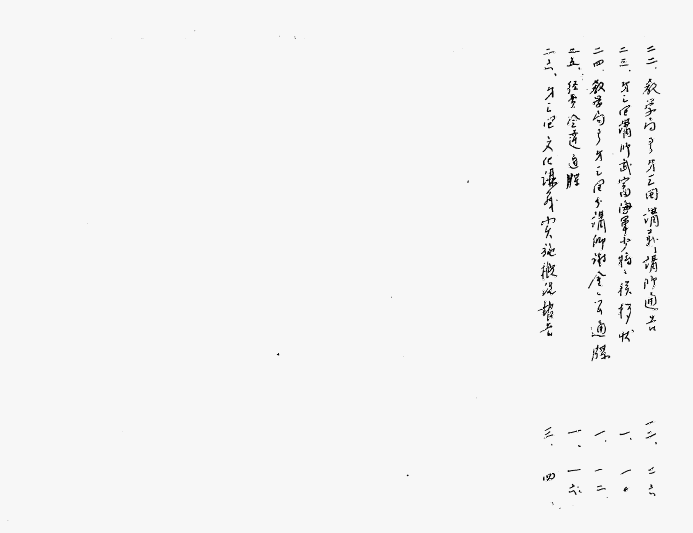 二二、教学局ヨリ第三回講義講師通告 一二、二六
二三、第三回講師武富海軍少将ヘ挨拶状 一、一〇
二四、教学局ヨリ第三回分講師謝金ノ通牒 一、一二
二五、経費金送通牒 一、一六
二六、第三回文化講義実施概況報告 三、四